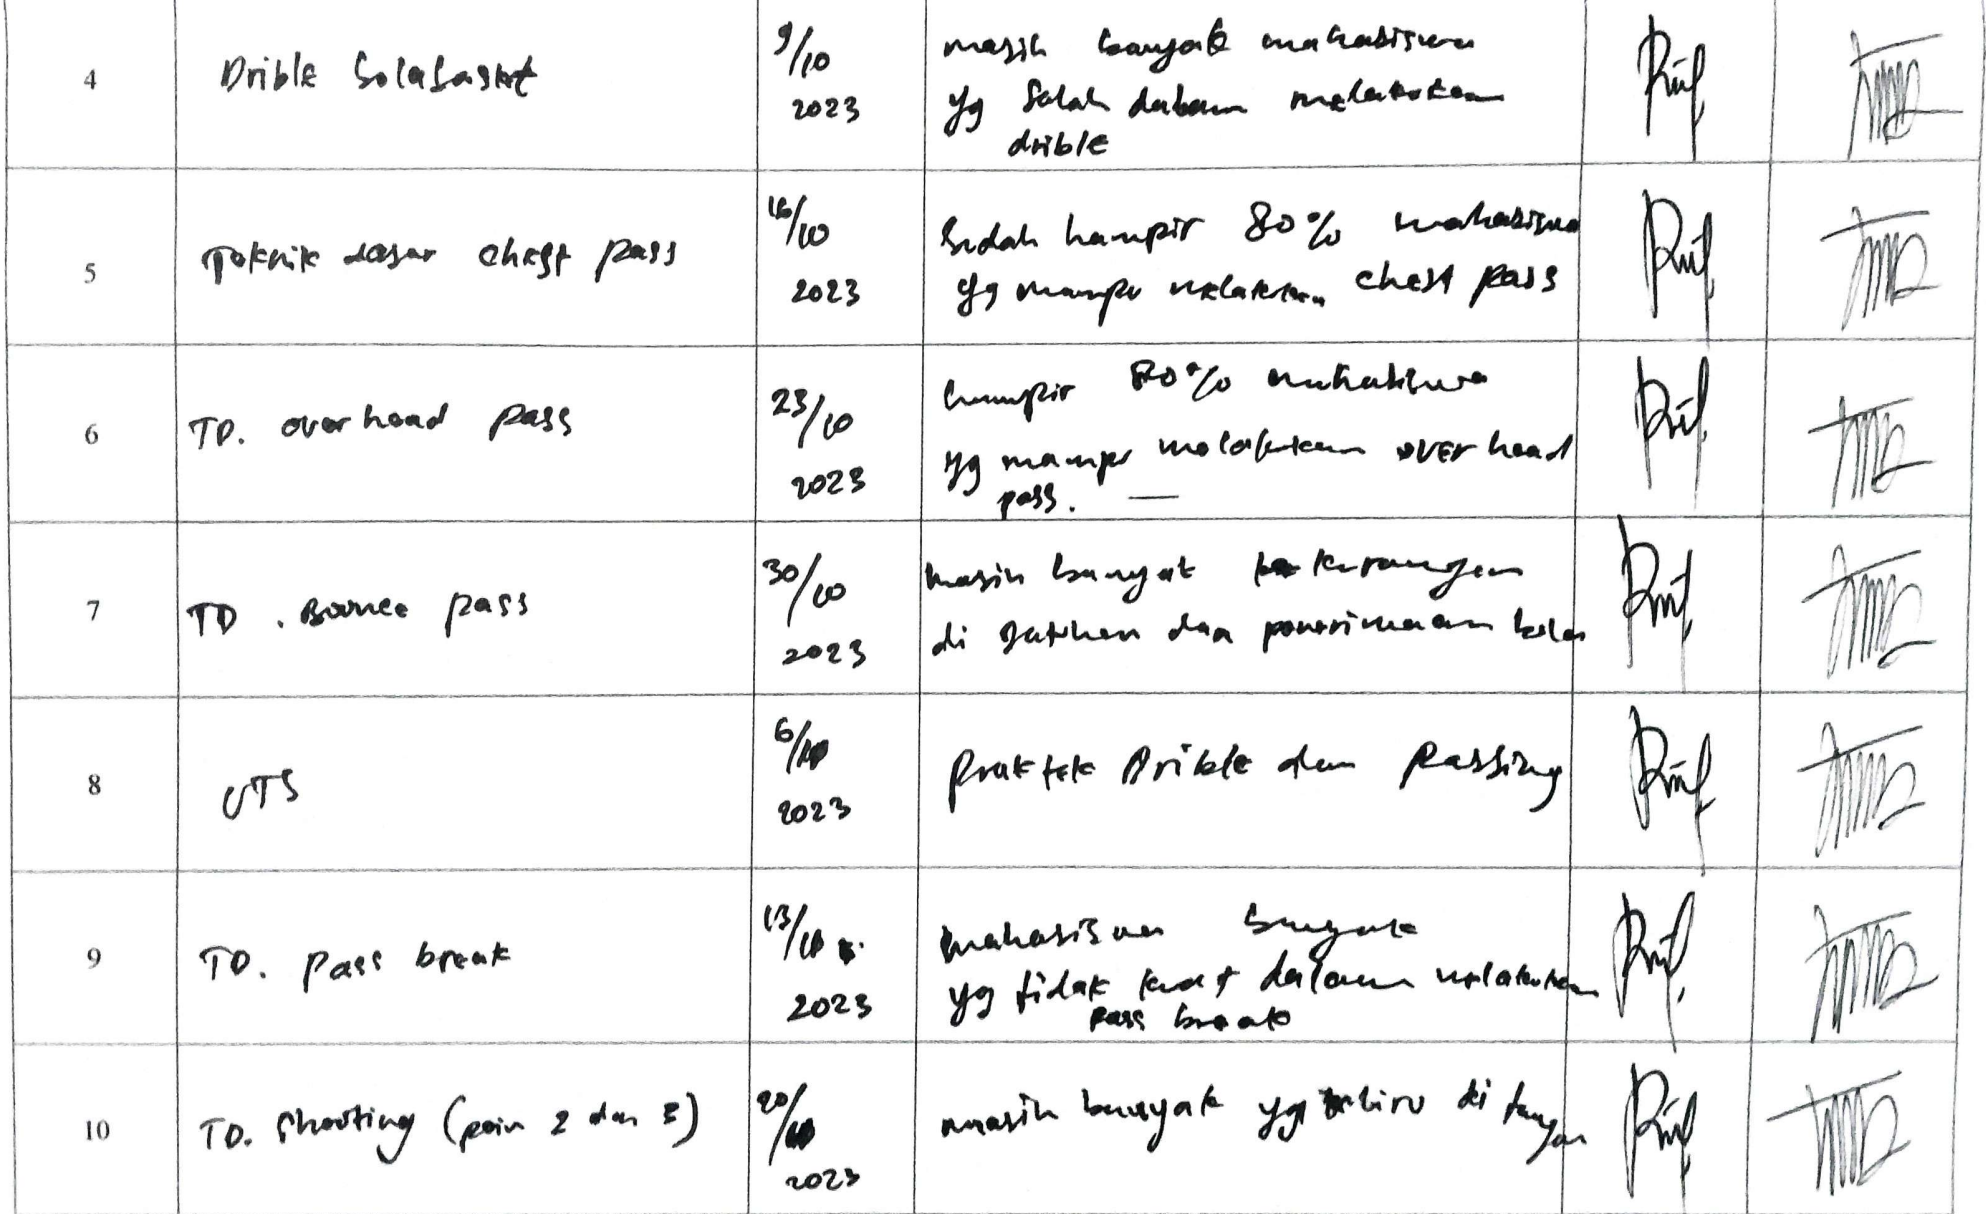 4
Drible bolabasket
9/10
2023
masih banyak mahasiswa
yg salah dalam melakukan
drible
5
Teknik dasar chest pass
16/10
2023
sudah hampir 80% mahasiswa
yg mampu melakukan chest pass
6
TD. overhead pass
23/10
2023
hampir 80% mahasiswa
yg mampu melakukan overhead
pass.
7
TD. Bounce pass
30/10
2023
masih banyak kekurangan
di dan penerimaan bola
8
UTS
6/
2023
Praktek Drible dan Passing
9
TD. pass break
13/
2023
mahasiswa banyak
yg tidak kuat dalam melakukan
pass break
10
TD. Shooting (poin 2 dan 3)
20/
2023
masih banyak yg keliru di tangan